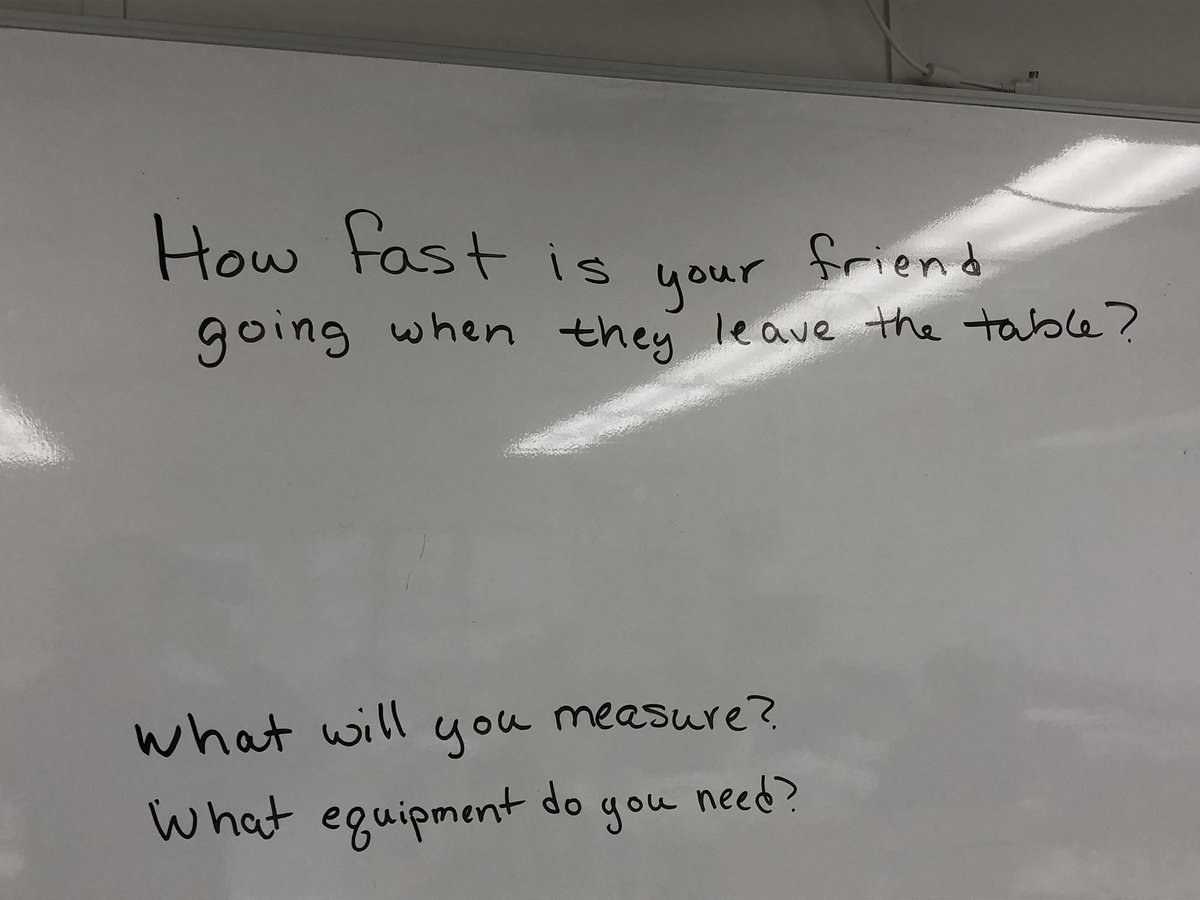 How fast is your friend
going when they leave the table?
What will you measure?
What equipment do you need?